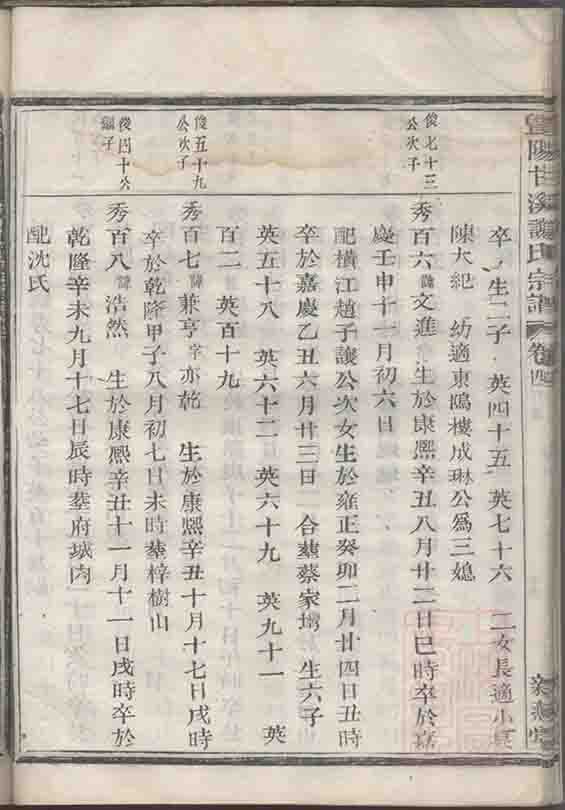 陽甘溪譚氏宗譜 卷四
卒 生二子 英四十五 英七十六 二女長適小
陳大紀 幼適東鳴樓成琳公為三媳
俊七十三
公次子
秀百六諱文進 生於康熙辛丑八月廿二日巳時卒於嘉
慶壬申十一月初六日
配橫江趙子讓公次女生於雍正癸卯二月廿四日丑時
卒於嘉慶乙丑六月廿三日 合葬蔡家塝 生六子
英五十八 英六十二 英六十九 英九十一 英
百二 英百十九
俊五十九
公次子
秀百七諱兼亨字亦乾 生於康熙辛丑十月十七日戌時
卒於乾隆甲子八月初七日未時葬梓樹山
俊四十六公
嗣子
秀百八諱浩然 生於康熙辛丑十一月十一日戌時卒於
乾隆辛未九月十七日辰時葬府城內
配沈氏